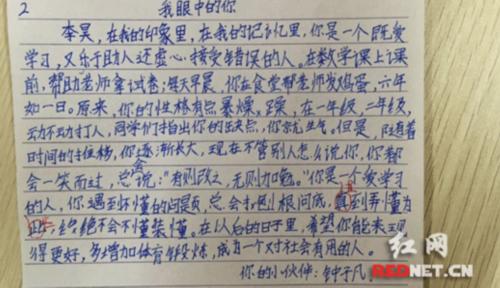 2
我眼中的你
李昊,在我的印象里,在我的记忆里,你是一个既爱
学习,又乐于助人还虚心接受错误的人。在数学课上课
前,帮助老师拿试卷;每天早晨,你在食堂帮老师发鸡蛋,六年
如一日。原来,你的性格有点暴燥。躁,在一年级,二年级,
动不动打人,同学们指出你的缺点,你就生气。但是,随着
时间的推移,你逐渐长大,现在不管别人怎么说你,你都
会一笑而过,总会说:"有则改之,无则加勉。"你是一个爱学习
的人,你遇到不懂的问题,总会刨根问底,直到弄懂为
止,绝不会不懂装懂。在以后的日子里,希望你能表现
得更好,多增加体育锻炼,成为一个对社会有用的人。
你的小伙伴:钟子凡
红网
REDNET.CN